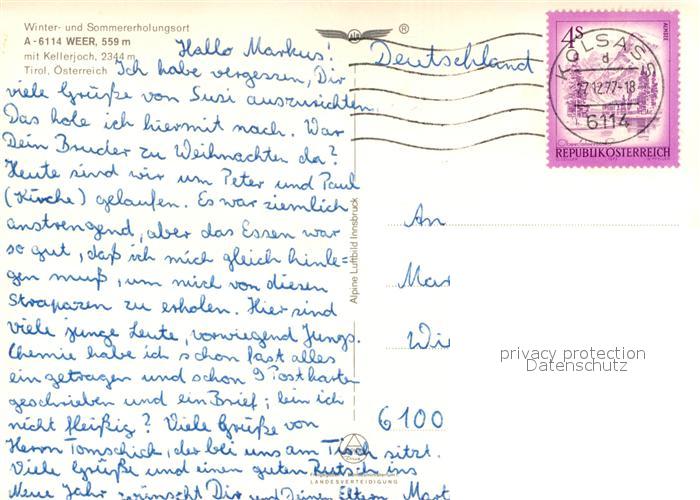 Winter- und Sommererholungsort
A-6114 WEER, 559 m
mit Kellerjoch, 2344 m
Tirol, Österreich
®
Deutschland
4 S
ALMSEE
REPUBLIK ÖSTERREICH
KOLSASS
d
27.12.77-18
6114
Hallo Markus!
Ich habe vergessen, Dir
viele Grüße von Susi auszurichten.
Das hole ich hiermit nach. War
Dein Bruder zu Weihnachten da?
Heute sind wir um Peter und Paul
(Kirche) gelaufen. Es war ziemlich
anstrengend, aber das Essen war
so gut, daß ich mich gleich hinle=
gen muß, um mich von diesen
Strapazen zu erholen. Hier sind
viele junge Leute, vorwiegend Jungs.
Chemie habe ich schon fast alles
eingetragen und schon 9 Postkarten
geschrieben und ein Brief; bin ich
nicht fleißig? Viele Grüße von
Herrn Tomschick, der bei uns am Tisch sitzt.
Viele Grüße und einen guten Rutsch ins
Neue Jahr wünscht Dir und Deinen Eltern Mart
Alpine Luftbild Innsbruck
An
Mar
Wi
6100
privacy protection
Datenschutz
LANDESVERTEIDIGUNG